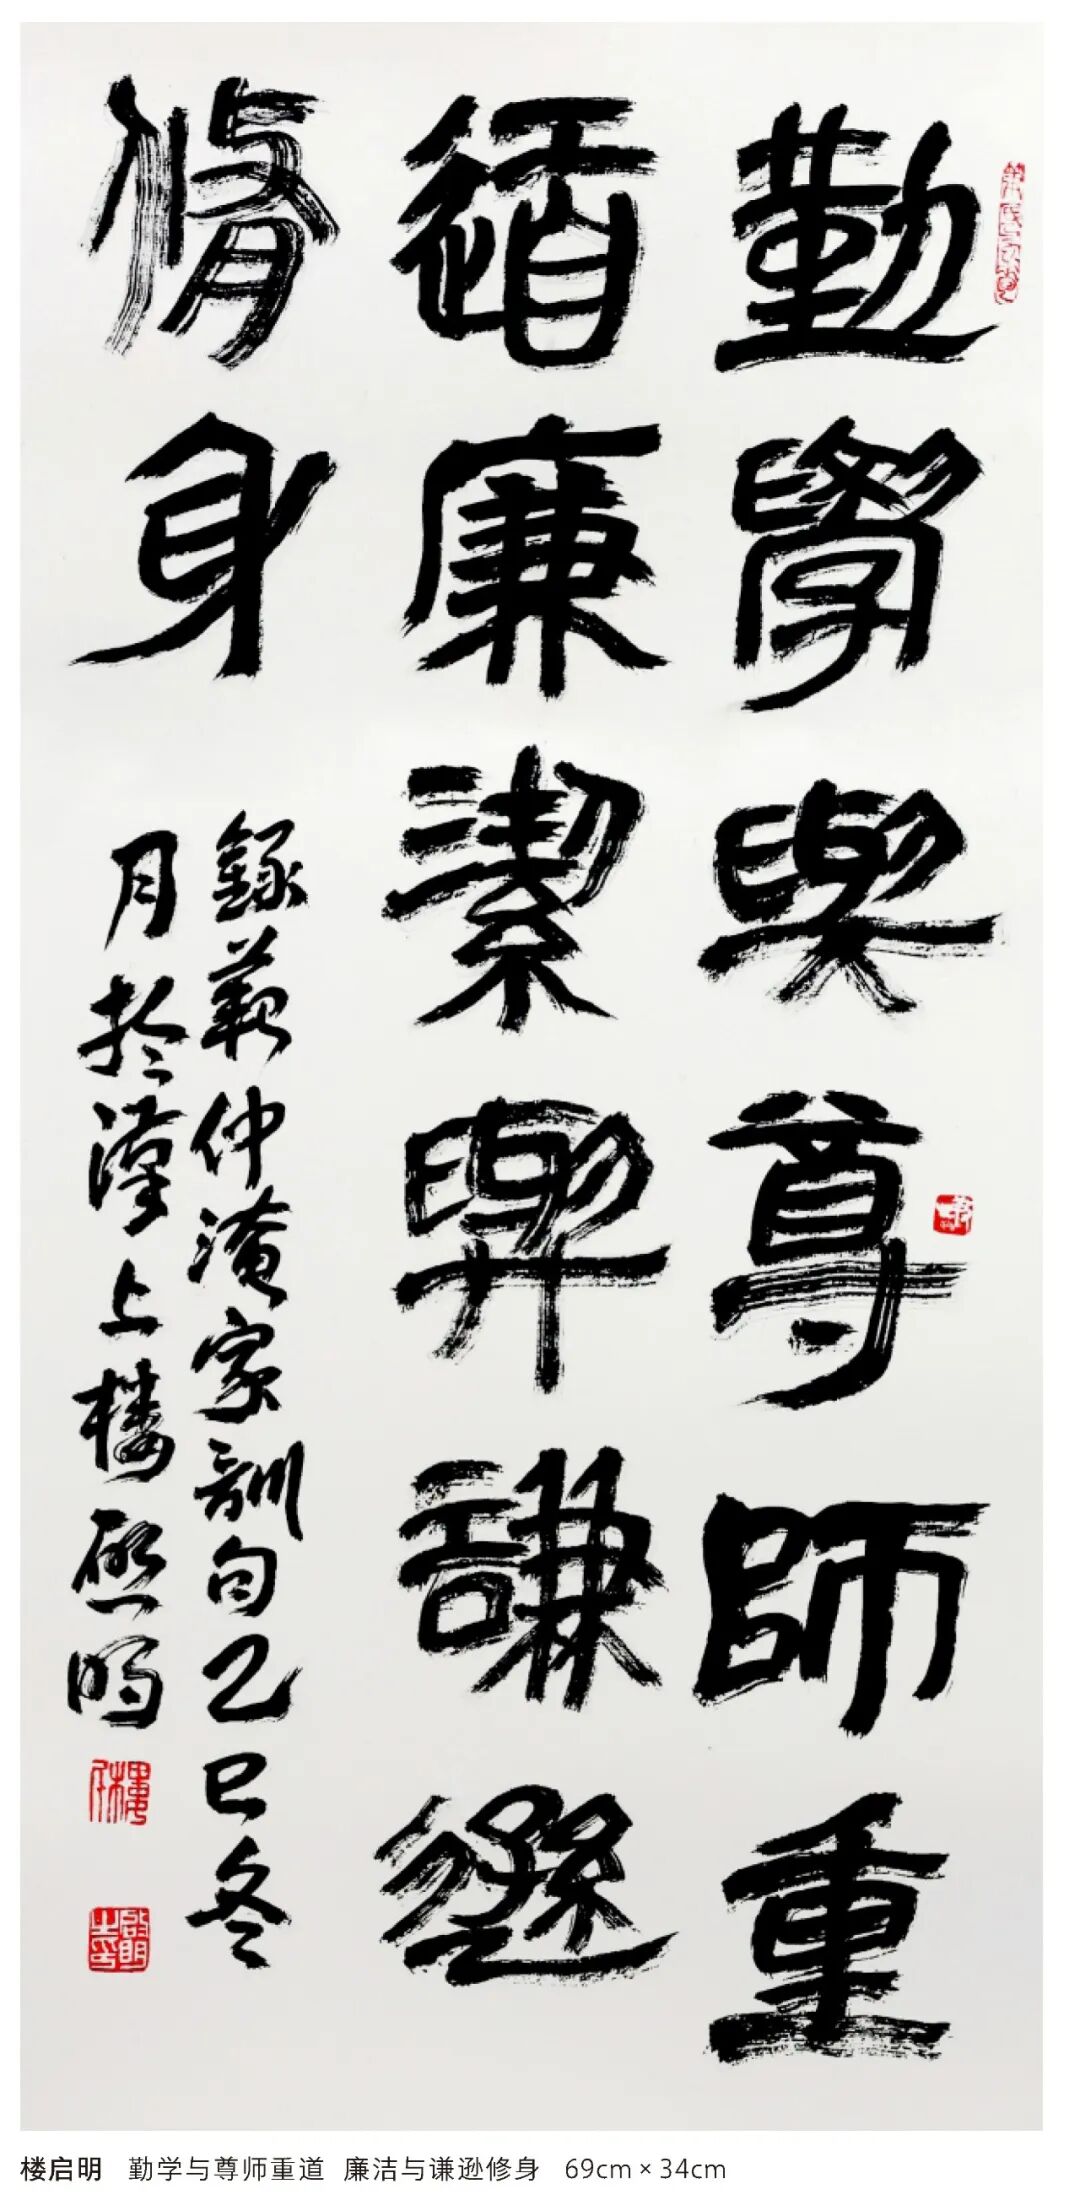 勤學與尊師重
道廉潔與謙遜
脩身
錄範仲淹家訓句乙巳冬
月於漢上樓啟明
樓
啟明之印
楼启明 勤学与尊师重道 廉洁与谦逊修身 69cm×34cm